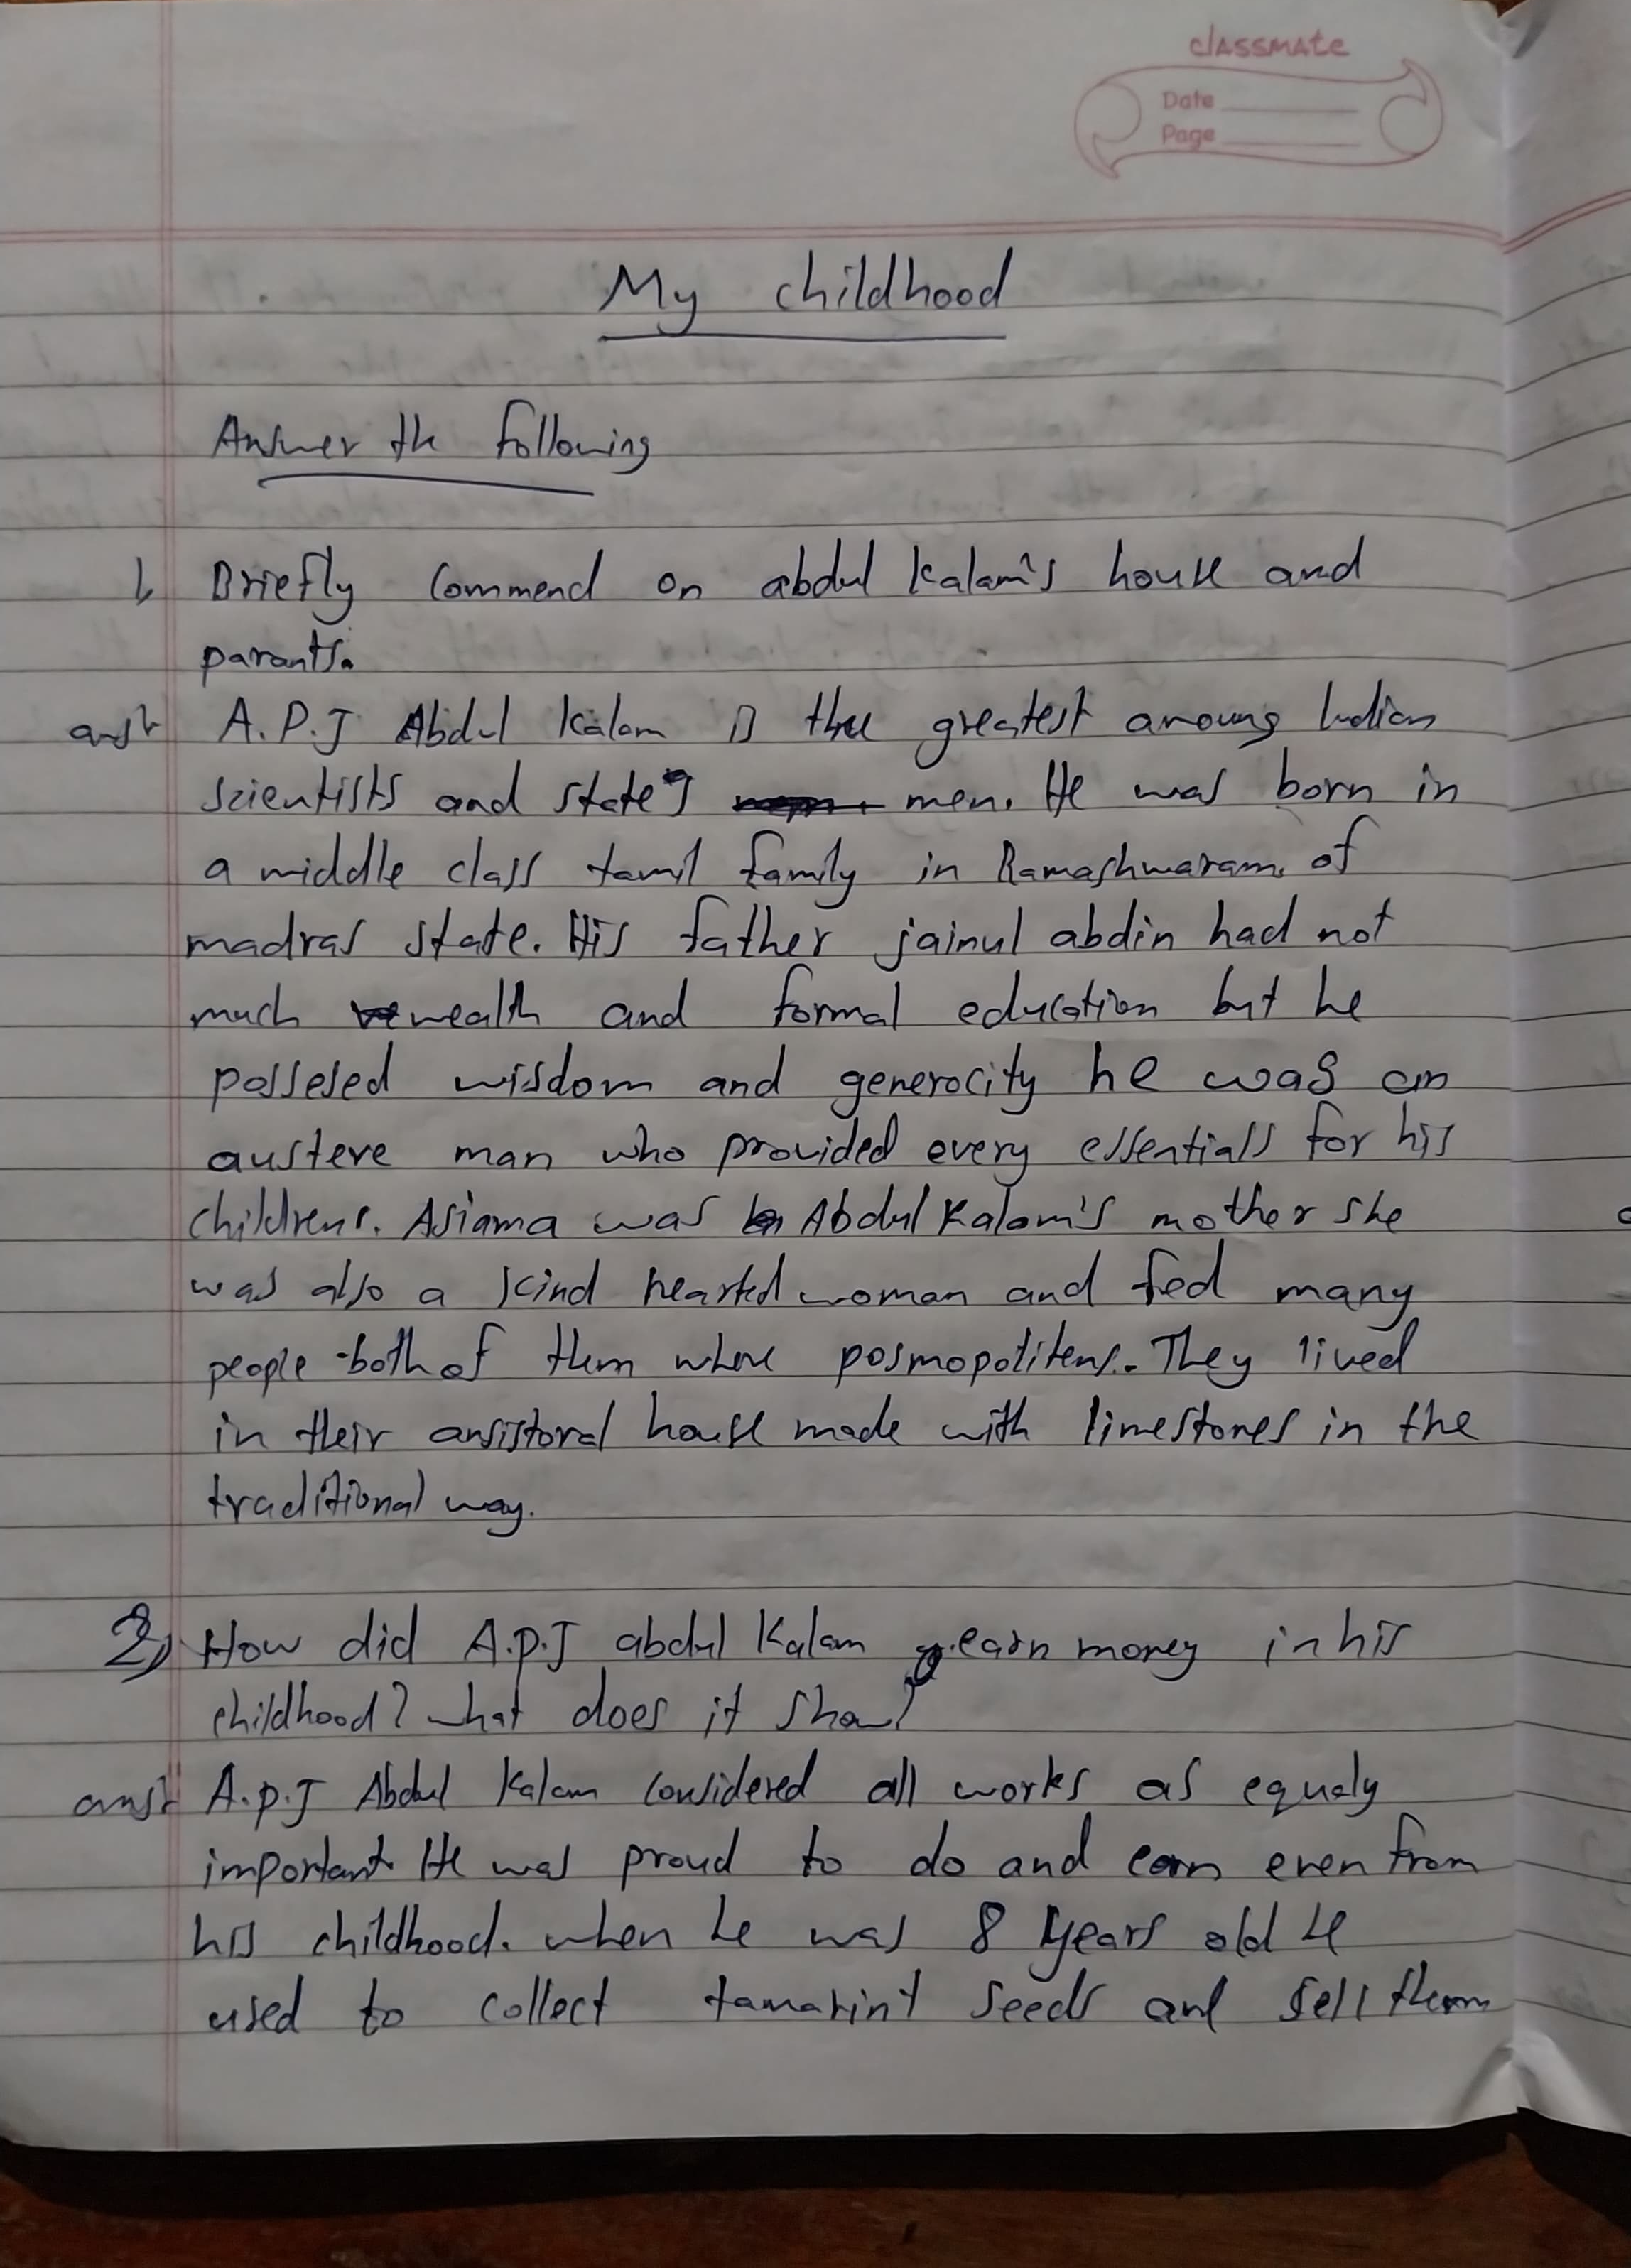 classmate
Date
Page
My childhood
Answer the following
1, Briefly Commend on abdul Kalam's house and
parants.
ans:- A.P.J Abdul Kalam is the greatest amoung Indian
scientists and state's men. He was born in
a middle class tamil family in Ramashwaram, of
madras state. His father jainul abdin had not
much wealth and formal education but he
possesed wisdom and generocity he was an
austere man who provided every essentials for his
childrens. Asiama was Abdul Kalam's mother she
was also a kind hearted woman and fed many
people both of them where posmopolitens. They lived
in their ansistoral house made with limestones in the
traditional way.
2) How did A.p.J abdul Kalam earn money in his
childhood? what does it show?
ans:- A.p.J Abdul Kalam Considered all works as equaly
important. He was proud to do and earn even from
his childhood. when he was 8 years old he
used to collect tamarint seeds and sell them